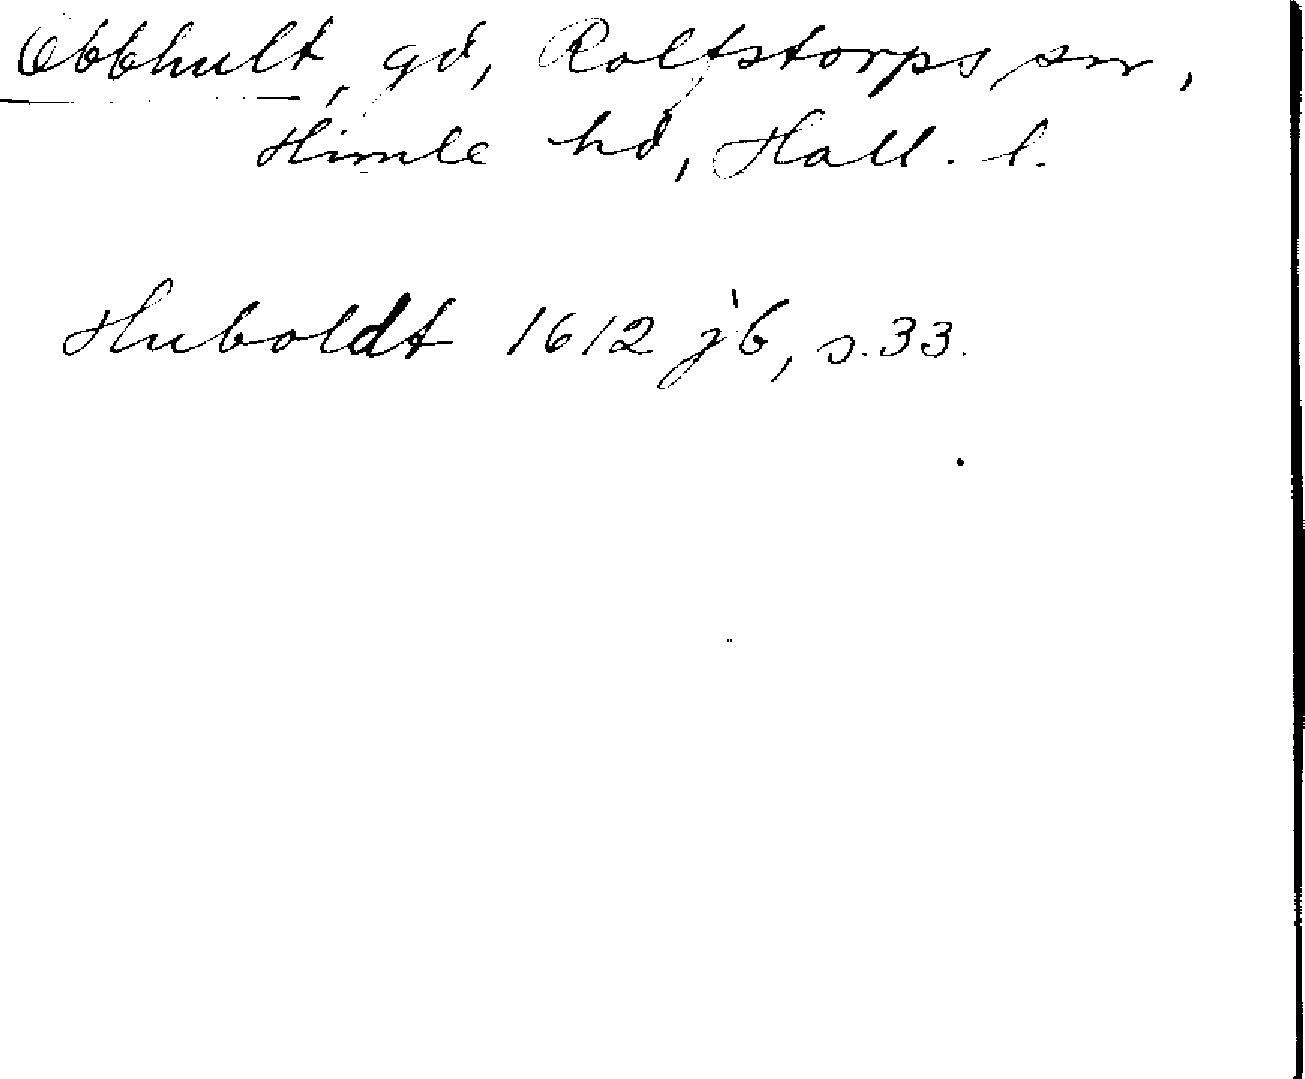 Obbhult, gd, Rolfstorps sn,
Himle hd, Hall. l.
Huboldt 1612 jb, s. 33.